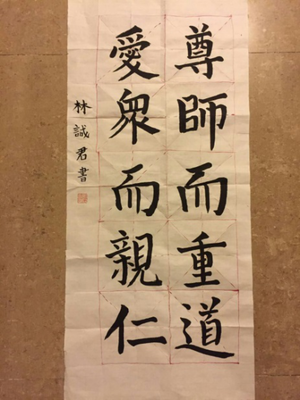 尊師而重道
愛眾而親仁
林誠君書